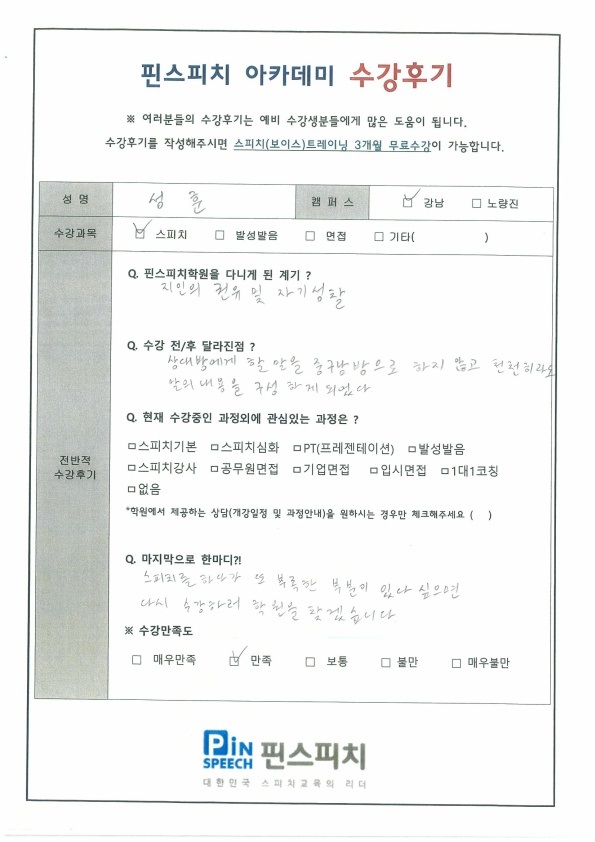 핀스피치 아카데미 수강후기
※ 여러분들의 수강후기는 예비 수강생분들에게 많은 도움이 됩니다.
수강후기를 작성해주시면 스피치(보이스)트레이닝 3개월 무료수강이 가능합니다.
성 명 성 훈 캠 퍼 스 ☑ 강남 □ 노량진
수강과목 ☑ 스피치 □ 발성발음 □ 면접 □ 기타( )
전반적
수강후기
Q. 핀스피치학원을 다니게 된 계기 ?
지인의 권유 및 자기성찰
Q. 수강 전/후 달라진점 ?
상대방에게 할 말을 중구난방으로 하지 않고 천천히라도
말의 내용을 구성 하게 되었다
Q. 현재 수강중인 과정외에 관심있는 과정은 ?
□스피치기본 □스피치심화 □PT(프레젠테이션) □발성발음
□스피치강사 □공무원면접 □기업면접 □입시면접 □1대1코칭
□없음
*학원에서 제공하는 상담(개강일정 및 과정안내)을 원하시는 경우만 체크해주세요 ( )
Q. 마지막으로 한마디?!
스피치를 하다가 또 부족한 부분이 있다 싶으면
다시 수강하러 학원을 찾겠습니다
※ 수강만족도
□ 매우만족 ☑ 만족 □ 보통 □ 불만 □ 매우불만
PiN SPEECH 핀스피치
대한민국 스피치교육의 리더